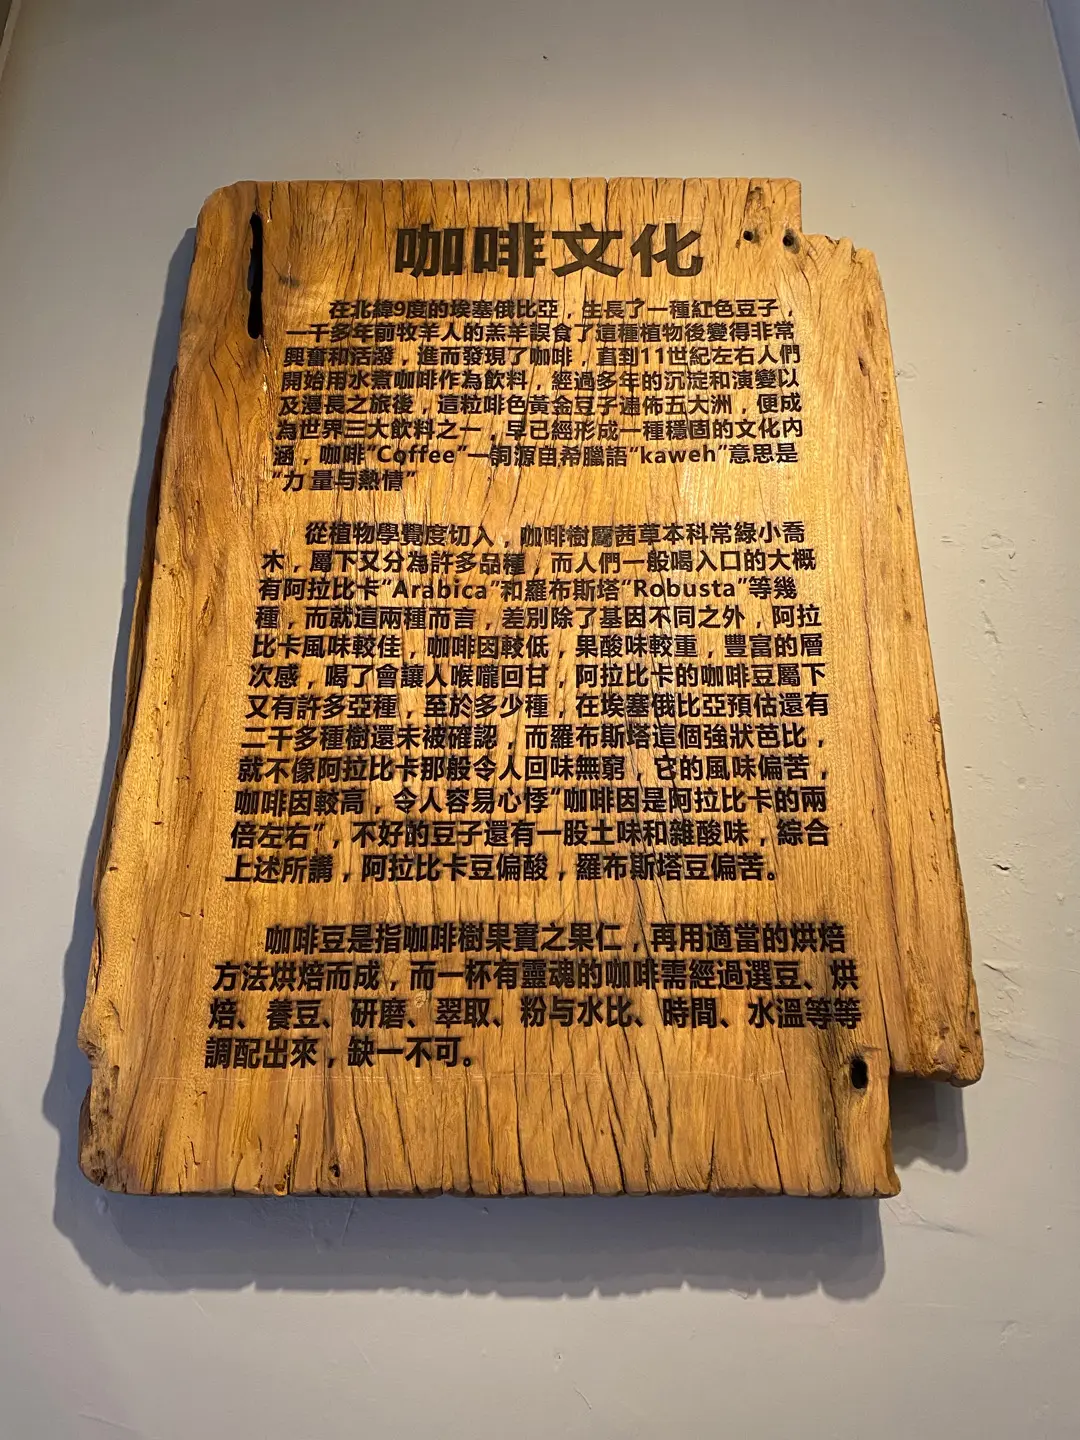 咖啡文化
在北緯9度的埃塞俄比亞，生長了一種紅色豆子，
一千多年前牧羊人的羔羊誤食了這種植物後變得非常
興奮和活潑，進而發現了咖啡，直到11世紀左右人們
開始用水煮咖啡作為飲料，經過多年的沉淀和演變以
及漫長之旅後，這粒啡色黃金豆子遍佈五大洲，便成
為世界三大飲料之一，早已經形成一種穩固的文化內
涵，咖啡"Coffee"一詞源自希臘語"kaweh"意思是
"力量与熱情"
從植物學覺度切入，咖啡樹屬茜草本科常綠小喬
木，屬下又分為許多品種，而人們一般喝入口的大概
有阿拉比卡"Arabica"和羅布斯塔"Robusta"等幾
種，而就這兩種而言，差別除了基因不同之外，阿拉
比卡風味較佳，咖啡因較低，果酸味較重，豐富的層
次感，喝了會讓人喉嚨回甘，阿拉比卡的咖啡豆屬下
又有許多亞種，至於多少種，在埃塞俄比亞預估還有
二千多種樹還未被確認，而羅布斯塔這個強狀芭比，
就不像阿拉比卡那般令人回味無窮，它的風味偏苦，
咖啡因較高，令人容易心悸"咖啡因是阿拉比卡的兩
倍左右"，不好的豆子還有一股土味和雜酸味，綜合
上述所講，阿拉比卡豆偏酸，羅布斯塔豆偏苦。
咖啡豆是指咖啡樹果實之果仁，再用適當的烘焙
方法烘焙而成，而一杯有靈魂的咖啡需經過選豆、烘
焙、養豆、研磨、翠取、粉与水比、時間、水溫等等
調配出來，缺一不可。